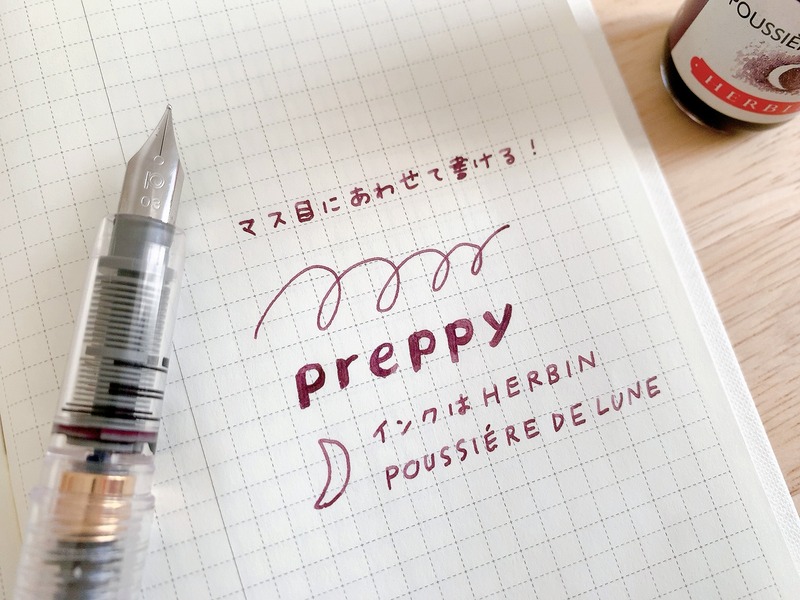 POUSSIÈ
HERBI
マス目にあわせて書ける！
preppy
インクは HERBIN
POUSSIÉRE DE LUNE
03